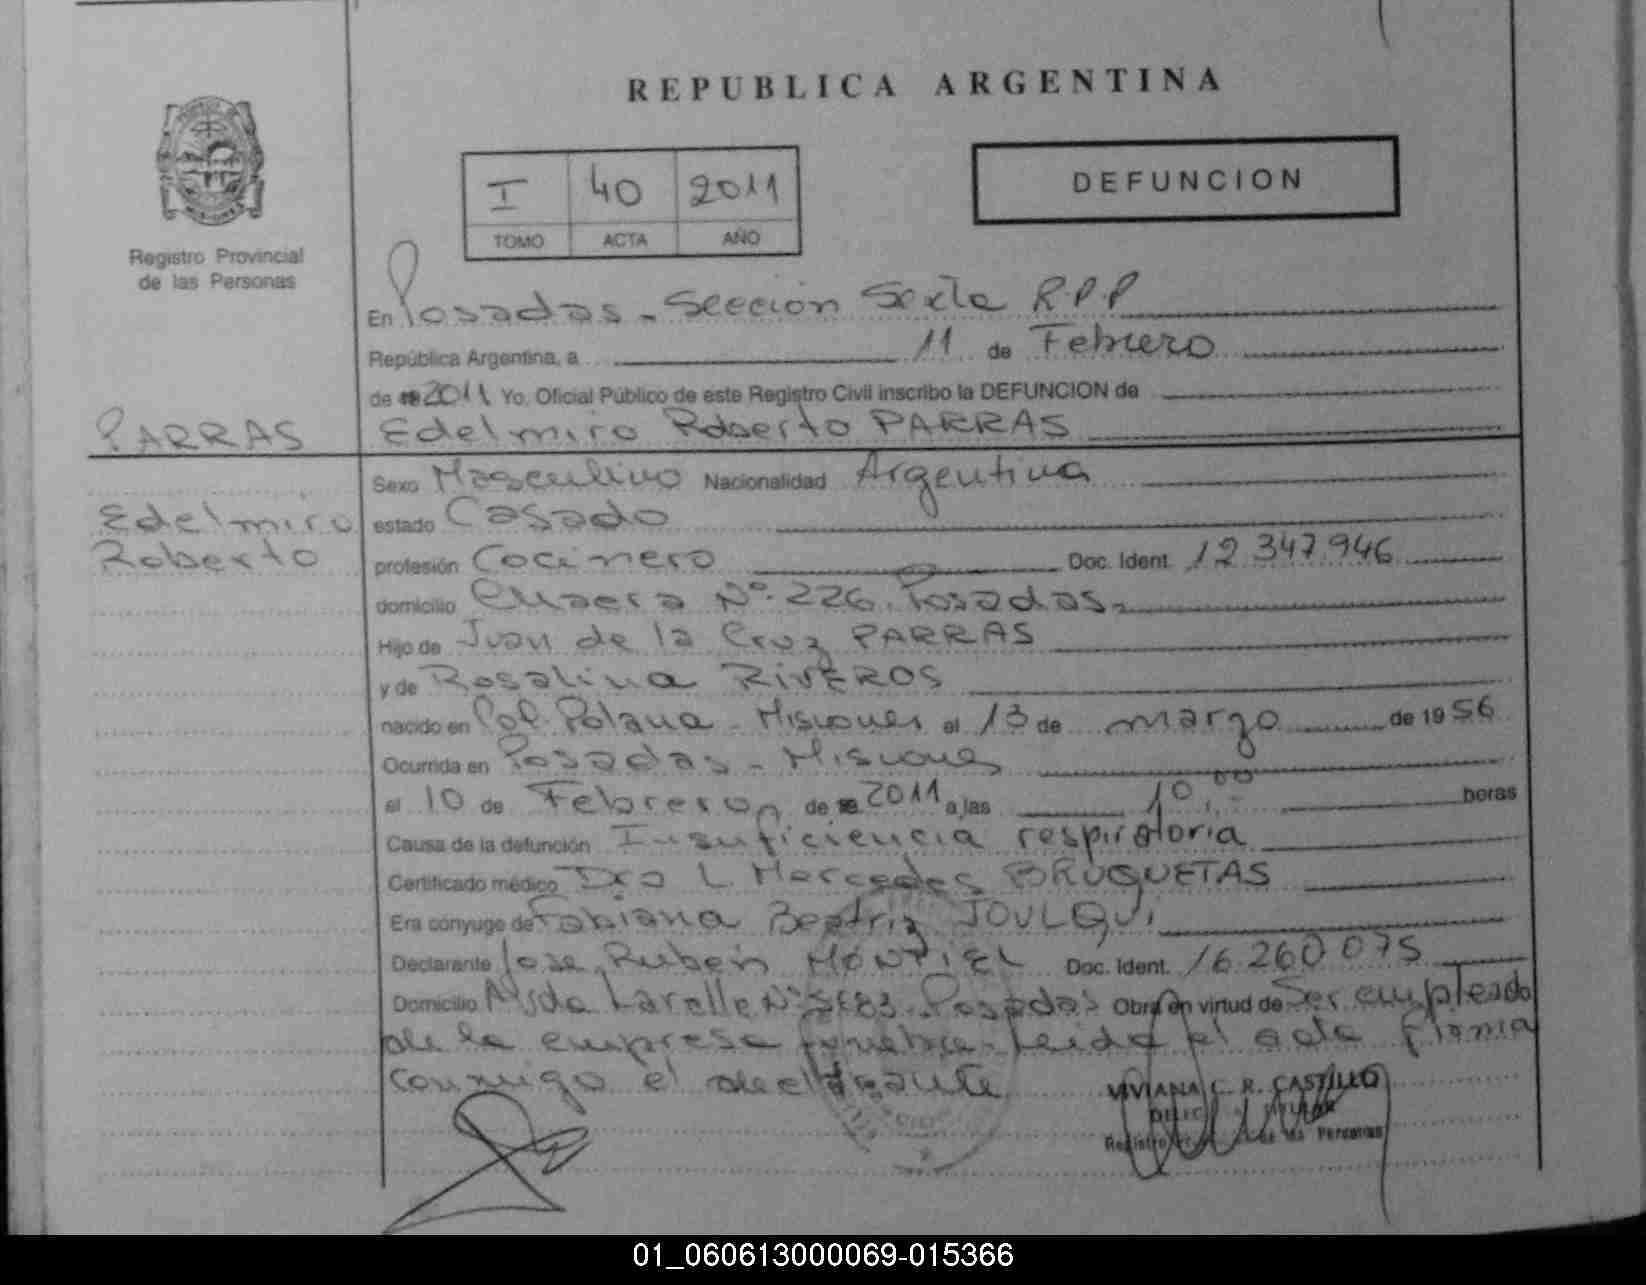 REPUBLICA ARGENTINA
I 40 2011
TOMO ACTA AÑO
DEFUNCION
Registro Provincial
de las Personas
En Posadas - Sección Sexta R.P.P
República Argentina, a 11 de Febrero
de 2011 Yo, Oficial Público de este Registro Civil inscribo la DEFUNCION de
PARRAS
Edelmiro Roberto PARRAS
Edelmiro
Roberto
Sexo Masculino Nacionalidad Argentina
estado Casado
profesión Cocinero Doc. Ident. 12.347.946
domicilio Nº 226. Posadas.
Hijo de Juan de la Cruz PARRAS
y de Rosalina RIVEROS
nacido en Col. Polana - Misiones el 13 de marzo de 1956
Ocurrida en Posadas - Misiones
el 10 de Febrero de 2011 a las 10,00 horas
Causa de la defunción Insuficiencia respiratoria
Certificado médico Dra L Mercedes BRUQUETAS
Era cónyuge de Fabiana Beatriz JOULQUI
Declarante Jose Ruben MONTIEL Doc. Ident. 16.260.075
Domicilio Nº Posadas Obra en virtud de Ser empleado
de la empresa funebre. Leida el acta firma
conmigo el declarante
VIVIANA C. R. CASTILLO
Registro de las Personas
01_060613000069-015366